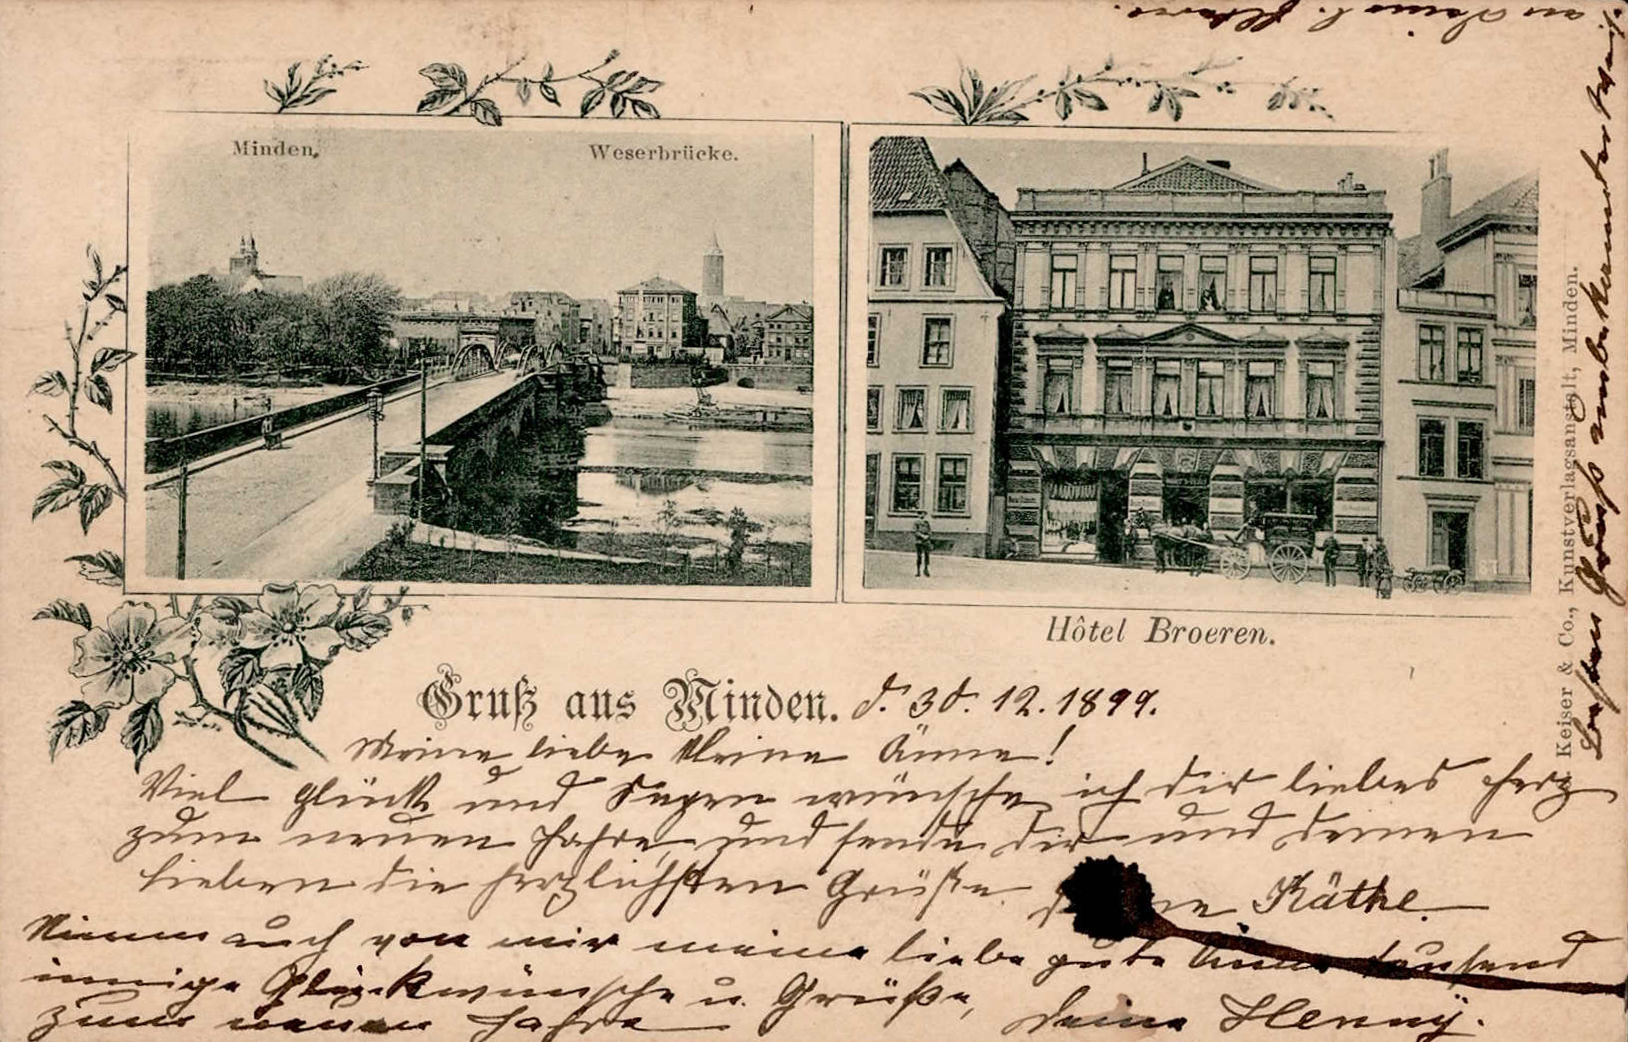 Minden.
Weserbrücke.
Hôtel Broeren.
Keiser & Co., Kunstverlagsanstalt, Minden.
Gruß aus Minden. d. 30. 12. 1899.
Meine liebe kleine Änne!
Viel Glück und Segen wünsche ich dir liebes Herz
zum neuen Jahre, und sende dir und deinen
Lieben die herzlichsten Grüße. Käthe.
Nimm auch von mir meine liebe gute Änne tausend
innige Glückwünsche u. Grüße,
zum neuen Jahre Deine Henny.
Besten Gruß unbekannter Weise
an Deine l. Eltern.